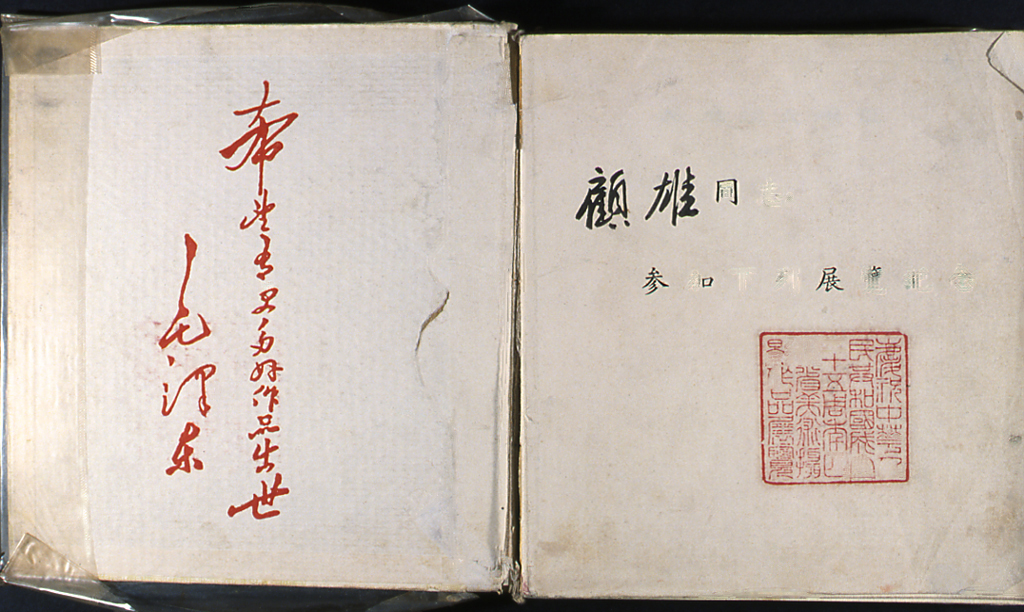 希望有更多好作品出世
毛澤东
顧雄同志
参加下列展覽纪念
慶祝中華人
民共和國成立
十五周年
省美術攝
影作品展覽